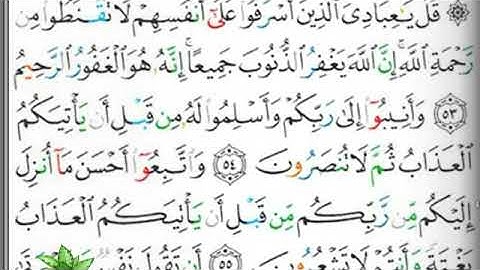 ۞ قُلْ يَـٰعِبَادِىَ ٱلَّذِينَ أَسْرَفُوا۟ عَلَىٰٓ أَنفُسِهِمْ لَا تَقْنَطُوا۟ مِن
رَّحْمَةِ ٱللَّهِ ۚ إِنَّ ٱللَّهَ يَغْفِرُ ٱلذُّنُوبَ جَمِيعًا ۚ إِنَّهُۥ هُوَ ٱلْغَفُورُ ٱلرَّحِيمُ
۝٥٣ وَأَنِيبُوٓا۟ إِلَىٰ رَبِّكُمْ وَأَسْلِمُوا۟ لَهُۥ مِن قَبْلِ أَن يَأْتِيَكُمُ
ٱلْعَذَابُ ثُمَّ لَا تُنصَرُونَ ۝٥٤ وَٱتَّبِعُوٓا۟ أَحْسَنَ مَآ أُنزِلَ
إِلَيْكُم مِّن رَّبِّكُم مِّن قَبْلِ أَن يَأْتِيَكُمُ ٱلْعَذَابُ
بَغْتَةً وَأَنتُمْ لَا تَشْعُرُونَ ۝٥٥ أَن تَقُولَ نَفْسٌ